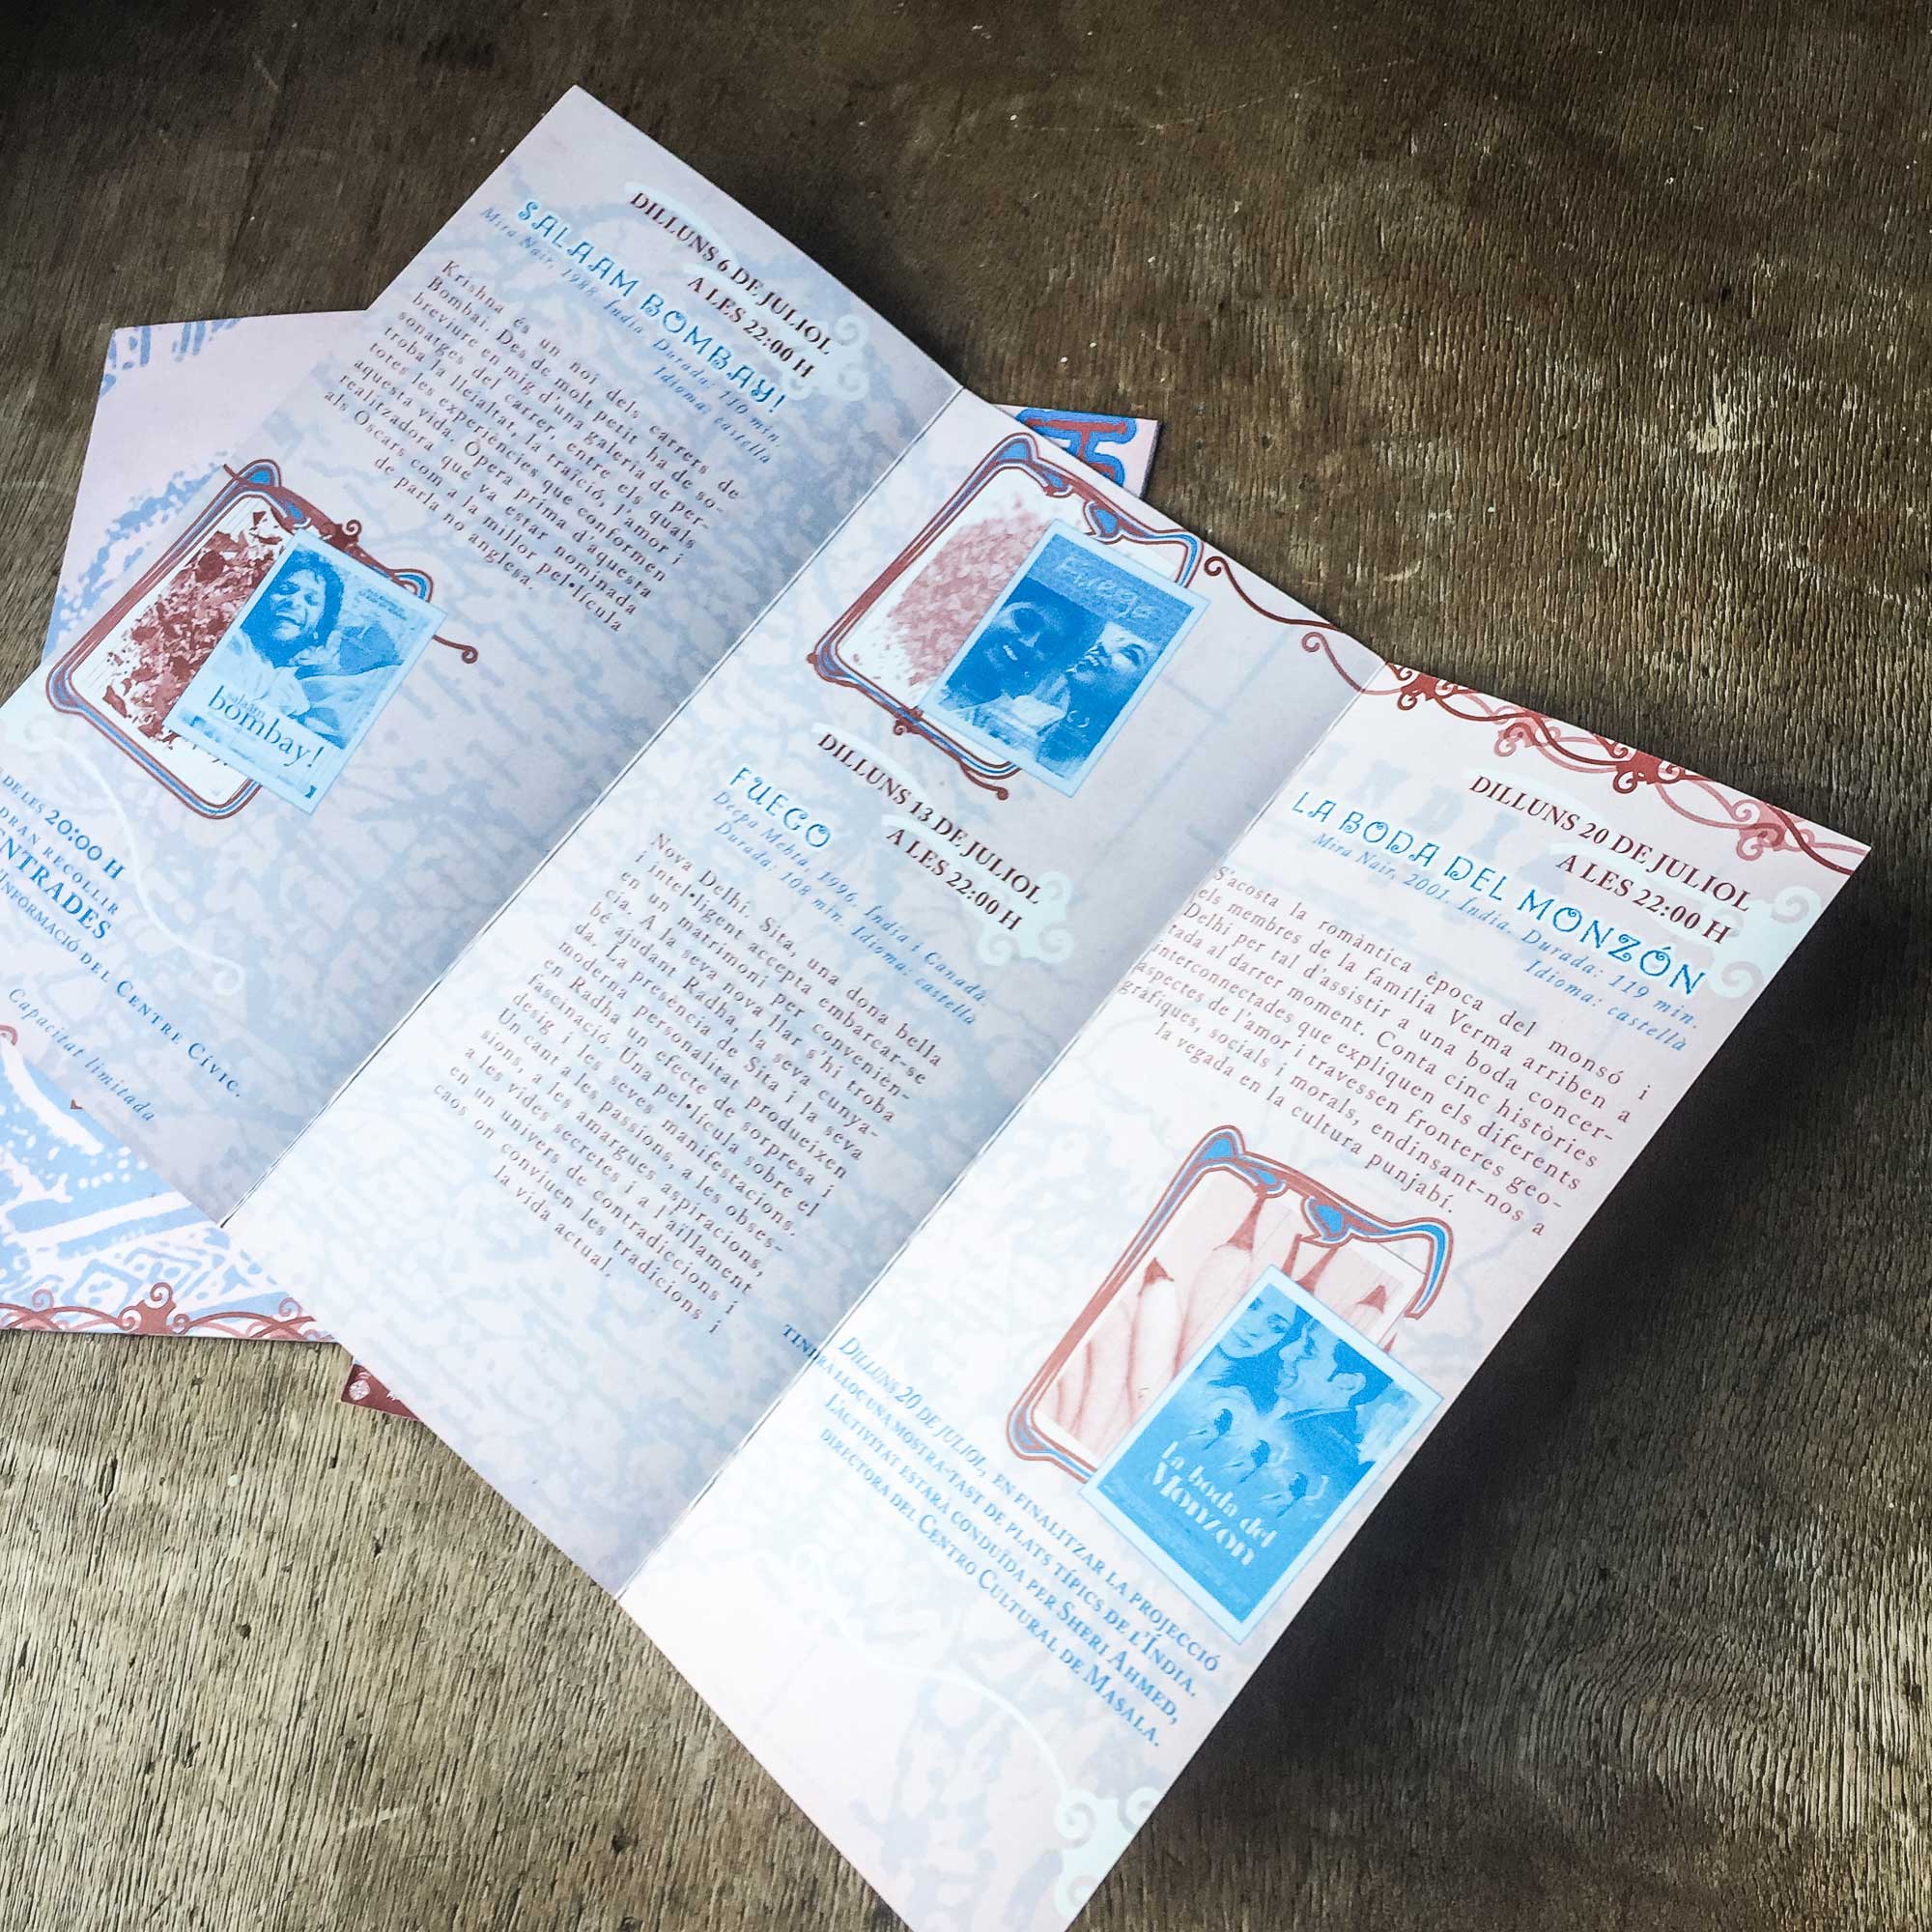 DILLUNS 6 DE JULIOL
A LES 22:00 H
SALAAM BOMBAY!
Mira Nair, 1988. Índia. Durada: 110 min.
Idioma: castellà
Krishna és un noi dels carrers de
Bombai. Des de molt petit ha de so-
breviure en mig d'una galeria de per-
sonatges del carrer, entre els quals
troba la lleialtat, la traïció, l'amor i
totes les experiències que conformen
aquesta vida. Òpera prima d'aquesta
realitzadora que va estar nominada
als Òscars com a la millor pel•lícula
de parla no anglesa.
salaam
bombay!
DE LES 20:00 H
DRAN RECOLLIR
ENTRADES
INFORMACIÓ DEL CENTRE CÍVIC.
Capacitat limitada
Fuego
DILLUNS 13 DE JULIOL
A LES 22:00 H
FUEGO
Deepa Mehta, 1996. Índia i Canadà.
Durada: 108 min. Idioma: castellà
Nova Delhi. Sita, una dona bella
i intel•ligent accepta embarcar-se
en un matrimoni per convenièn-
cia. A la seva nova llar s'hi troba
bé ajudant Radha, la seva cunya-
da. La presència de Sita i la seva
moderna personalitat produeixen
en Radha un efecte de sorpresa i
fascinació. Una pel•lícula sobre el
desig i les seves manifestacions.
Un cant a les passions, a les obses-
sions, a les amargues aspiracions,
a les vides secretes i a l'aïllament
en un univers de contradiccions i
caos on conviuen les tradicions i
la vida actual.
DILLUNS 20 DE JULIOL
A LES 22:00 H
LA BODA DEL MONZÓN
Mira Nair, 2001. Índia. Durada: 119 min.
Idioma: castellà
S'acosta la romàntica època del monsó i
els membres de la família Verma arriben a
Delhi per tal d'assistir a una boda concer-
tada al darrer moment. Conta cinc històries
interconnectades que expliquen els diferents
aspectes de l'amor i travessen fronteres geo-
gràfiques, socials i morals, endinsant-nos a
la vegada en la cultura punjabí.
la boda del
Monzón
DILLUNS 20 DE JULIOL, EN FINALITZAR LA PROJECCIÓ
TINDRÀ LLOC UNA MOSTRA-TAST DE PLATS TÍPICS DE L'ÍNDIA.
L'ACTIVITAT ESTARÀ CONDUÏDA PER SHERI AHMED,
DIRECTORA DEL CENTRO CULTURAL DE MASALA.